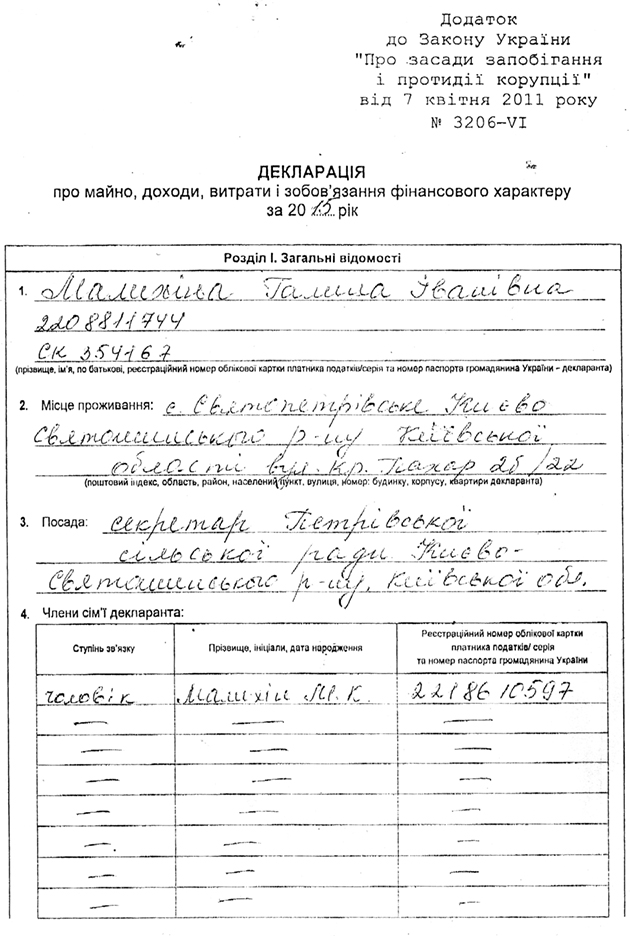 Додаток
до Закону України
"Про засади запобігання
і протидії корупції"
від 7 квітня 2011 року
№ 3206-VI
ДЕКЛАРАЦІЯ
про майно, доходи, витрати і зобов'язання фінансового характеру
за 2015 рік
Розділ І. Загальні відомості
1. Малихіна Галина Іванівна
2208811744
СК 354167
(прізвище, ім'я, по батькові, реєстраційний номер облікової картки платника податків/серія та номер паспорта громадянина України – декларанта)
2. Місце проживання: с. Святопетрівське Києво
Святошинського р-ну Київської
області вул. Кр. Пахар 2б/22
(поштовий індекс, область, район, населений пункт, вулиця, номер: будинку, корпусу, квартири декларанта)
3. Посада: секретар Петрівської
сільської ради Києво-
Святошинського р-ну, Київської обл.
4. Члени сім'ї декларанта:
Ступінь зв'язку
Прізвище, ініціали, дата народження
Реєстраційний номер облікової картки
платника податків/ серія
та номер паспорта громадянина України
чоловік Малихін М.К. 2218610597